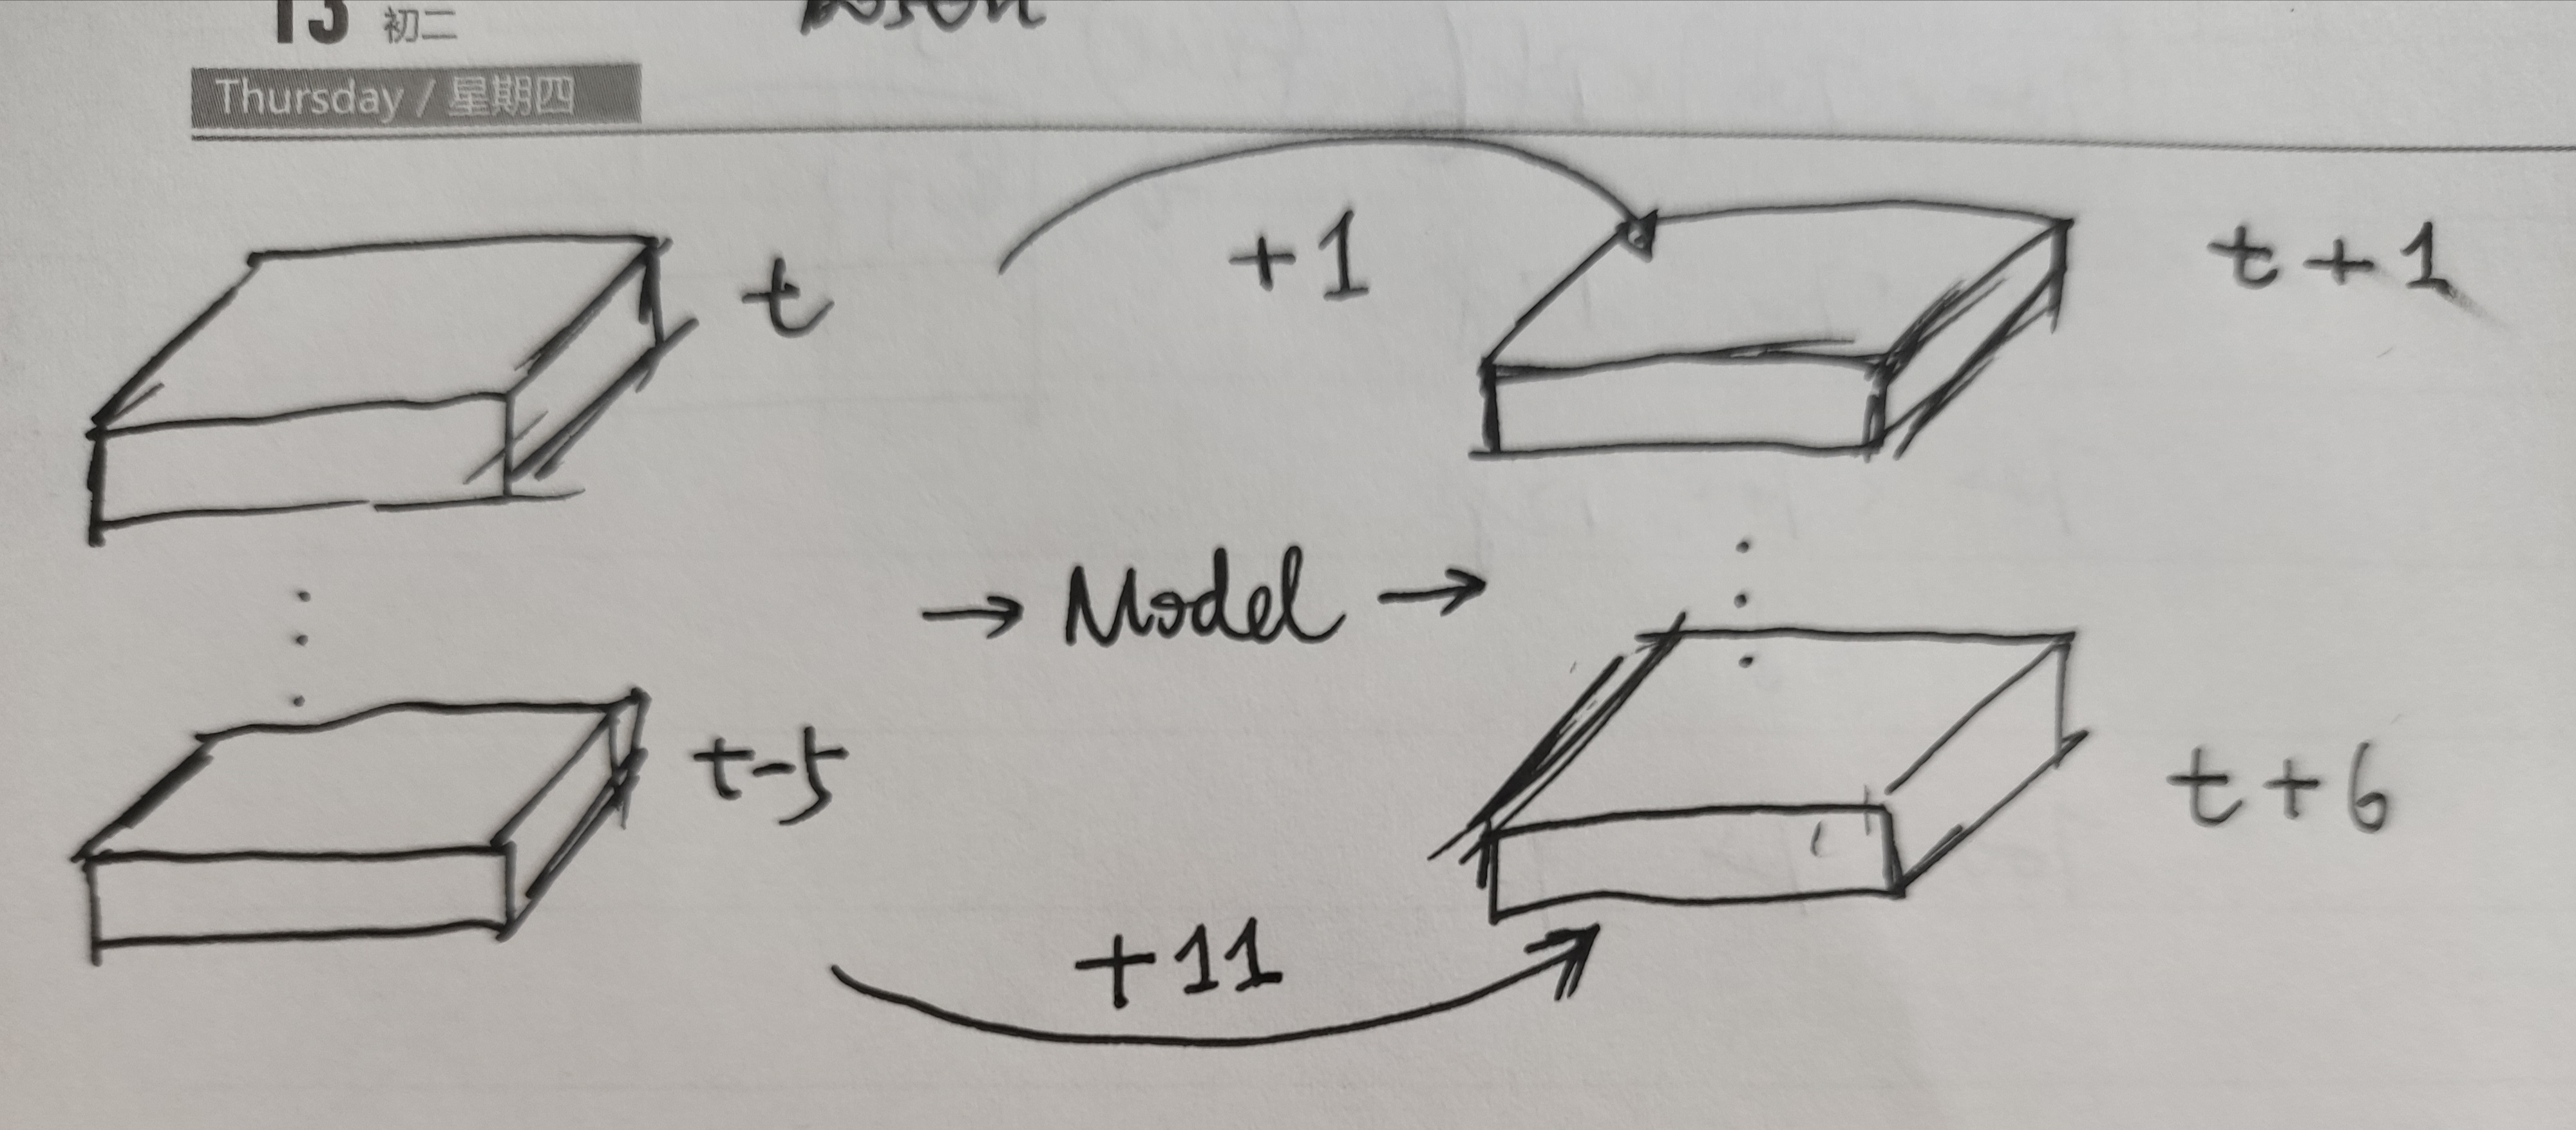 13 初二
Thursday / 星期四
t
+1
t+1
→ Model →
t-5
t+6
+11